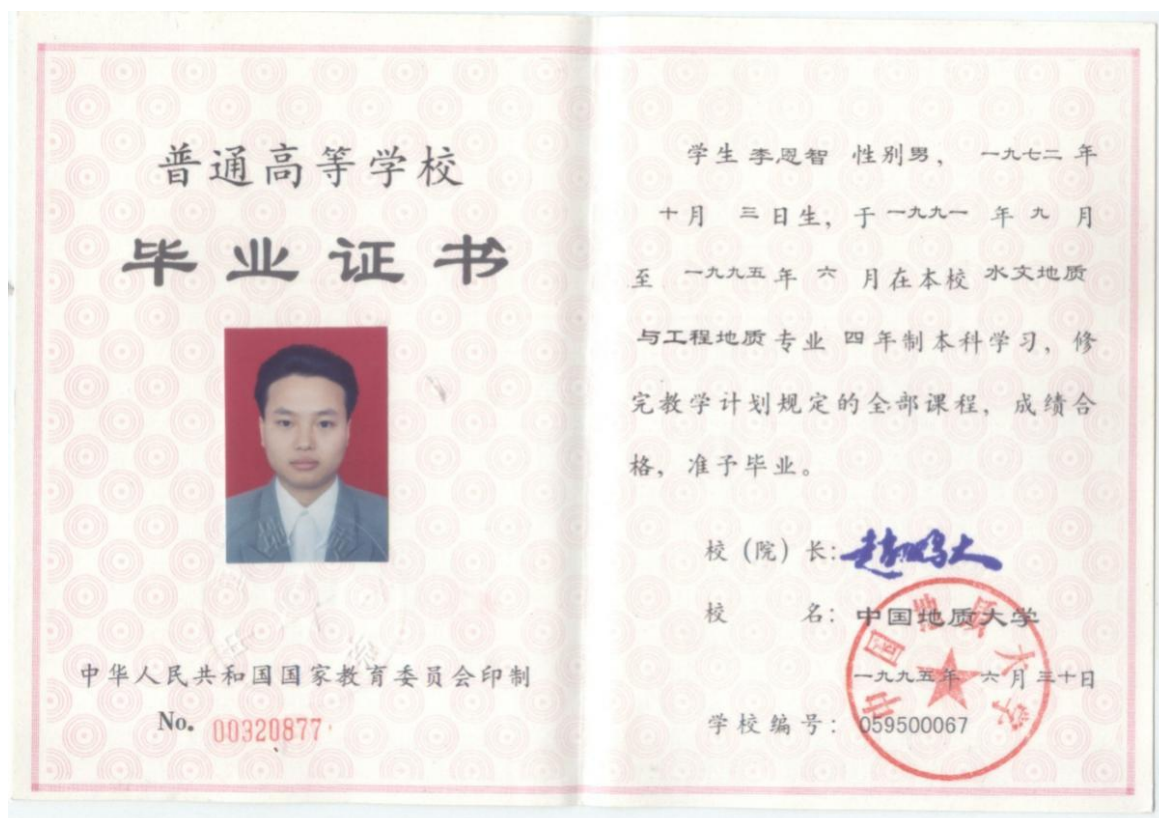 普通高等学校
毕业证书
中华人民共和国国家教育委员会印制
No. 00320877
学生 李恩智 性别男, 一九七二 年
十月 三日生, 于 一九九一 年 九 月
至 一九九五 年 六 月在本校 水文地质
与工程地质 专业 四 年制本科学习, 修
完教学计划规定的全部课程, 成绩合
格, 准予毕业。
校（院）长: 赵鹏大
校 名: 中国地质大学
中国地质大学
一九九五年 六月 三十日
学校编号: 059500067